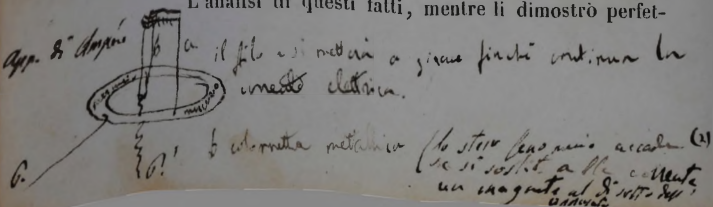 L'analisi di questi fatti, mentre li dimostrò perfet-
App. di Ampère
b a il filo a si metterà a girare finché continua la
corrente elettrica.
mercurio
b colonnetta metallica (lo stesso fenomeno accade (2)
se si sostit. alla corrente
un magnete al disotto dell'
P. P.'